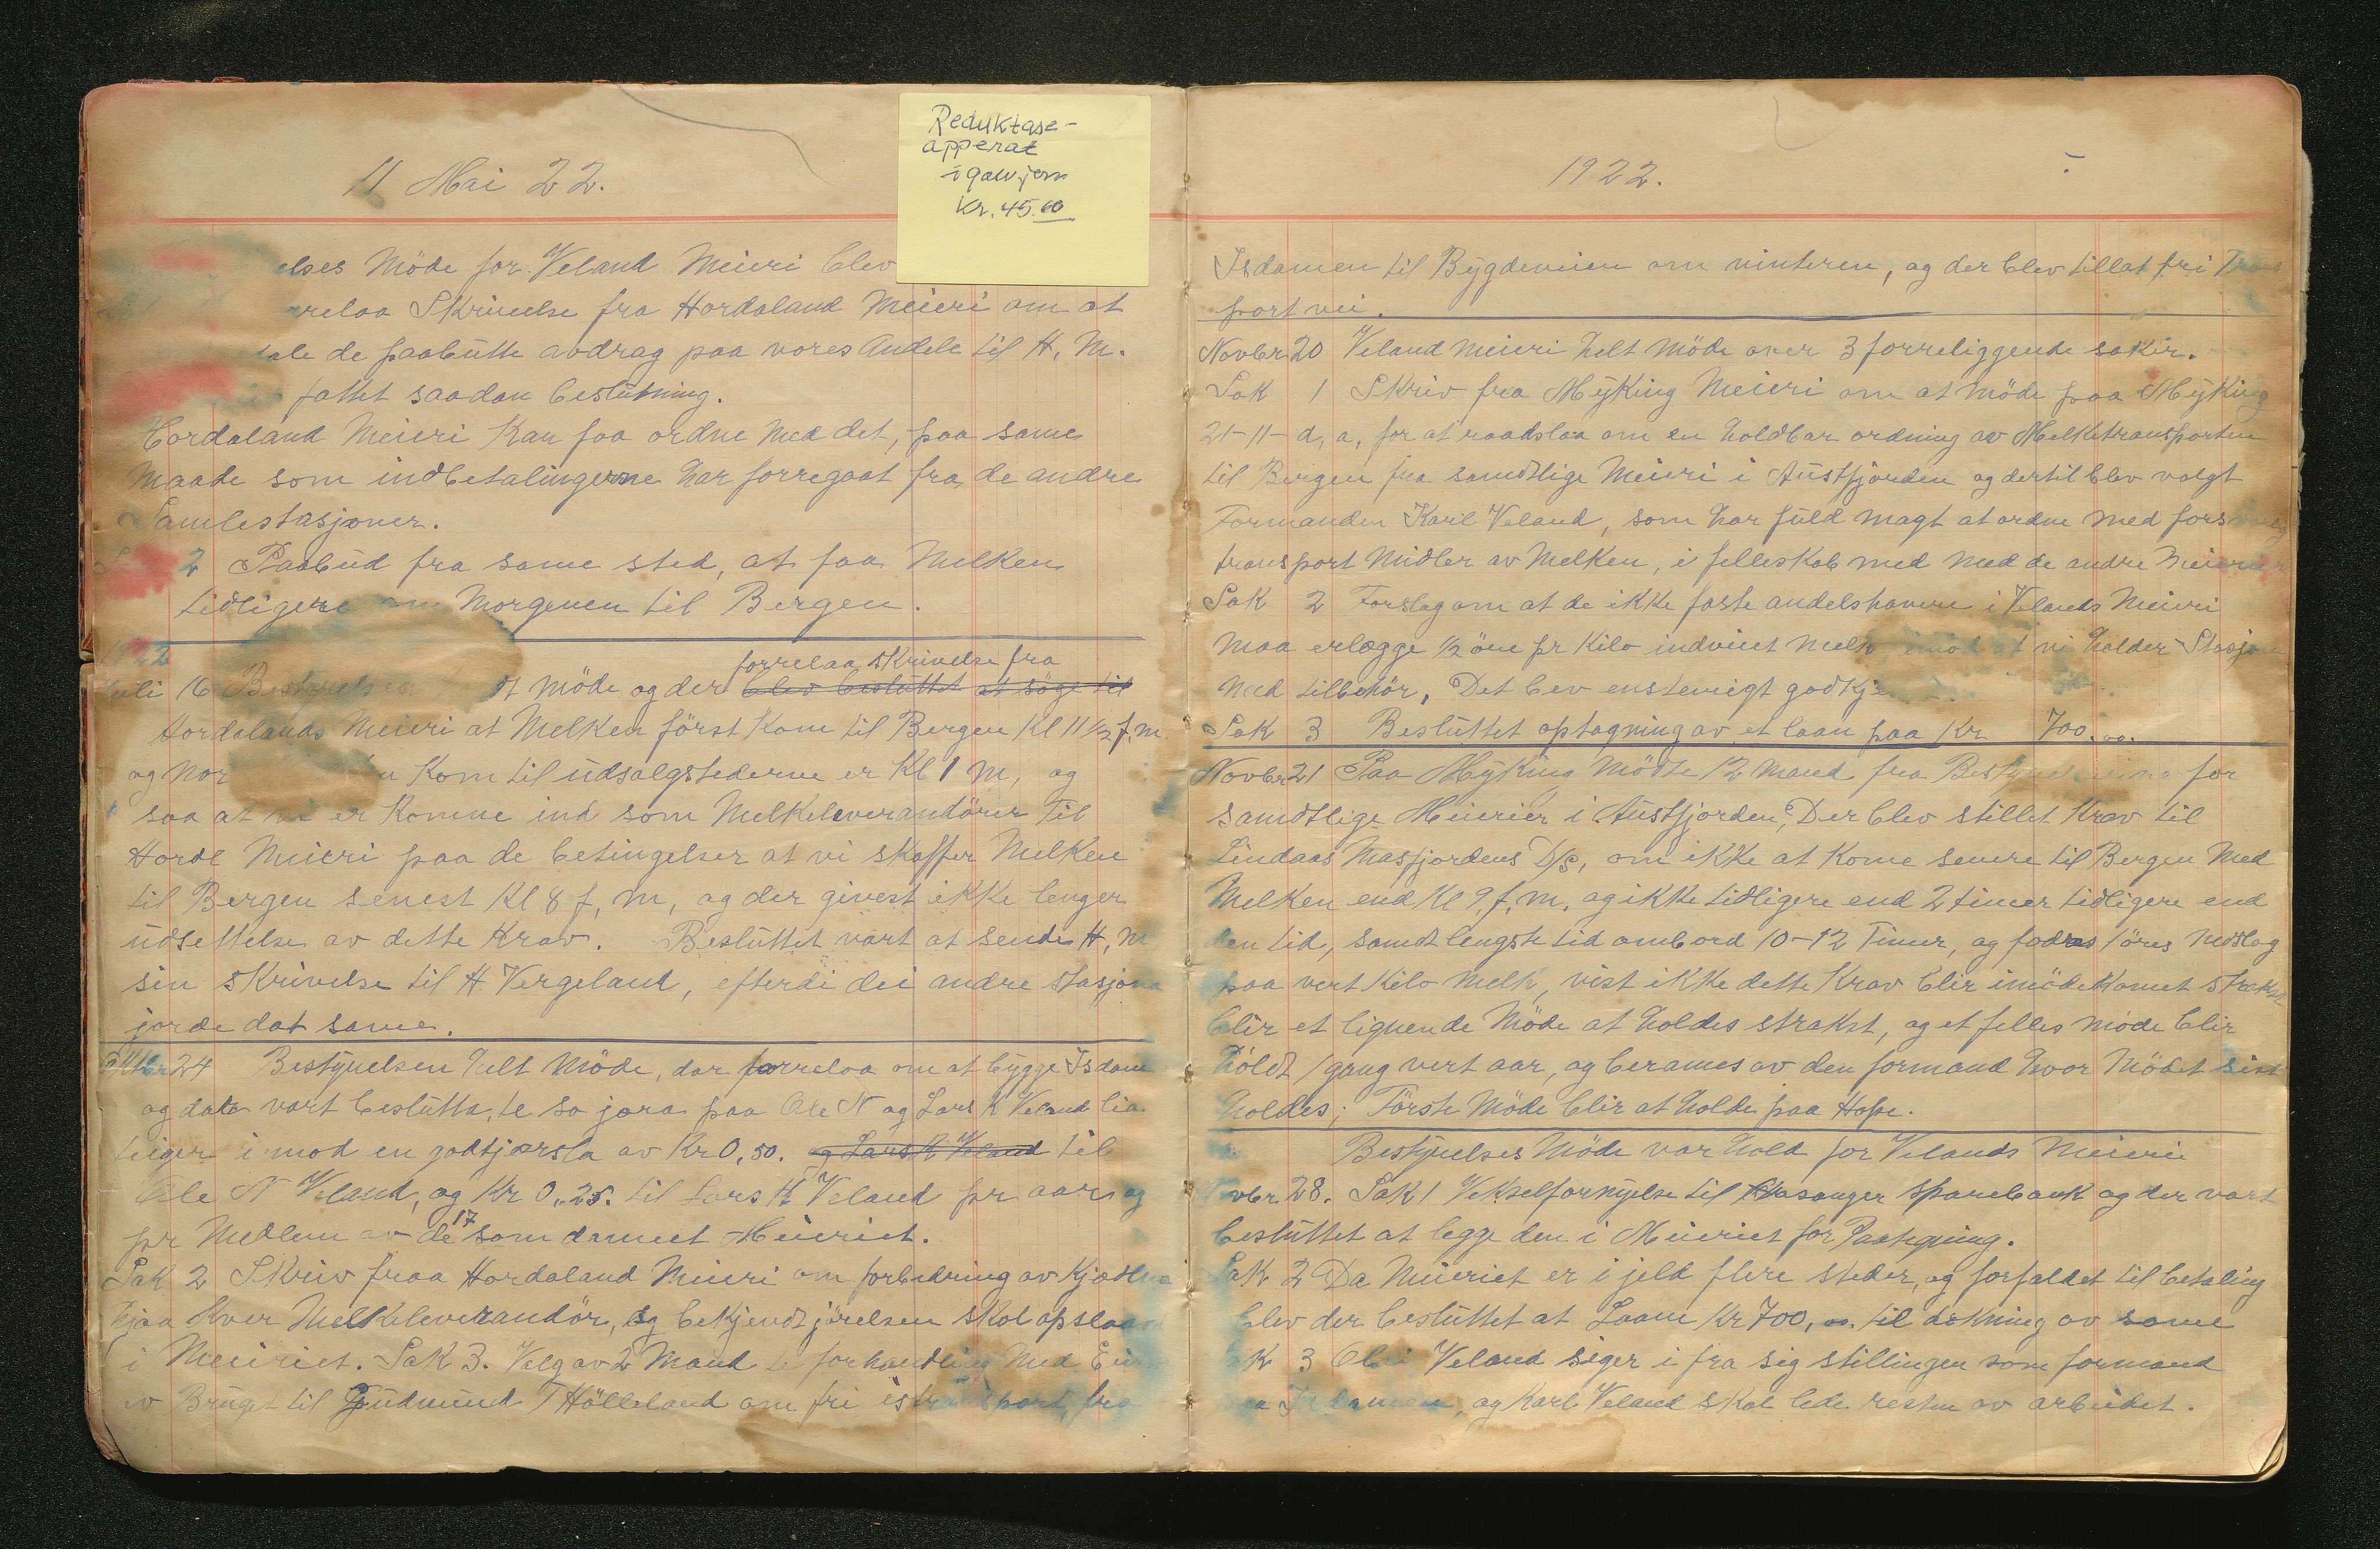 11 Mai 22.
Reduktase-
apperat
i galv. jern
Kr. 45.00
elses Möde for Veland Meieri blev
relaa Skrivelse fra Hordaland Meieri om at
tale de paabutte avdrag paa vores Andele til H. M.
fattet saadan beslutning.
Hordaland Meieri Kan faa ordne med det, paa same
maade som indbetalingerne har forregaat fra de andre
Samlestasjoner.
2 Paabud fra same sted, at faa Melken
tidligere om Morgenen til Bergen.
1922
forrelaa skrivelse fra
Juli 16 Bestyrelsen möde og der blev besluttet at söge til
Hordalands Meieri at Melken först Kom til Bergen Kl 11 1/2 f. m.
og nor Kom til udsalgstederne er Kl 1 M, og
saa at vi er Komne ind som Melkeleverandörer til
Hordl Meieri paa de betingelser at vi skaffer Melken
til Bergen senest Kl 8 f, m, og der givest ikke lenger
udsettelse av dette Krav. Besluttet vart at sende H, M
sin skrivelse til H. Vergeland, efterdi dei andre stasjona
jorde dat same.
Oktbr 24 Bestyrelsen helt Möde, dar forrelaa om at bygge Isdam
og data vart beslutta, te so jora paa Ole N og Lars H Veland lia
teiger i mod en godtjærsla av Kr 0,50. og Lars H Veland til
Ole N Veland, og Kr 0,25. til Lars H Veland pr aar og
17
pr Medlem av de som dannet Meieriet.
Sak 2 Skriv fraa Hordaland Meieri om forbedring av Kjødlna
hjaa hver Melkeleverandör, og bekjendtjörelsen skal opslaa
i Meieriet. Sak 3. Valg av 2 Mand te forhandling med Eier
av Bruget til Gudmund T Hölleland om fri istransport, fra
1922.
Isdamen til Bygdeveien om vinteren, og der blev tillat fri Trans
port vei.
Novbr 20 Veland meieri helt möde over 3 forreliggende saker.
Sak 1 Skriv fra Myking Meieri om at möde paa Myking
21-11- d, a, for at raadslaa om en holdbar ordning av Melketransporten
til Bergen fra samdtlige Meieri i Austfjorden og dertil blev valgt
Formanden Karl Veland, som har fuld magt at ordne med forsvarlig
transport Midler av Melken, i felleskab med med de andre Meierier
Sak 2 Forslag om at de ikke faste andelshavere i Velands Meieri
maa erlægge 1/2 öre pr Kilo indveiet melk imöd at vi holder Stasjon
med tilbehör, Det bev enstemigt godkje
Sak 3 Besluttet optagning av et laan paa Kr 700.00.
Novbr 21 Paa Myking Mödte 12 mand fra Bestyrelserne for
samdtlige Meierier i Austfjorden, Der blev stillet Krav til
Lindaas Masfjordens D/S, om ikke at Kome senere til Bergen med
Melken end Kl 9, f, m, og ikke tidligere end 2 timer tidligere end
den tid, samdt lengste tid ombord 10-12 Timer, og fodras 1 öres Nedslag
paa vert Kilo melk, vist ikke dette Krav blir imödekomet straks
blir et lignende Möde at holdes strakst, og et felles möde blir
höldt 1 gang vert aar, og berames av den formand hvor Mödet sist
holdes; Förste Möde blir at holde paa Hope.
Bestyrelses Möde var hold for Velands Meieri
Novbr 28. Sak 1 Vekselfornyelse til Hosanger Sparebank og der vart
besluttet at legge den i Meieriet for Paategning.
Sak 2 Da Meieriet er i jeld flere steder, og forfaldet til betaling
blev der besluttet at Laane Kr 700,00. til dekning av same
Sak 3 Veland siger i fra sig stillingen som formand
Isdamen, og Karl Veland skal lede resten av arbeidet.